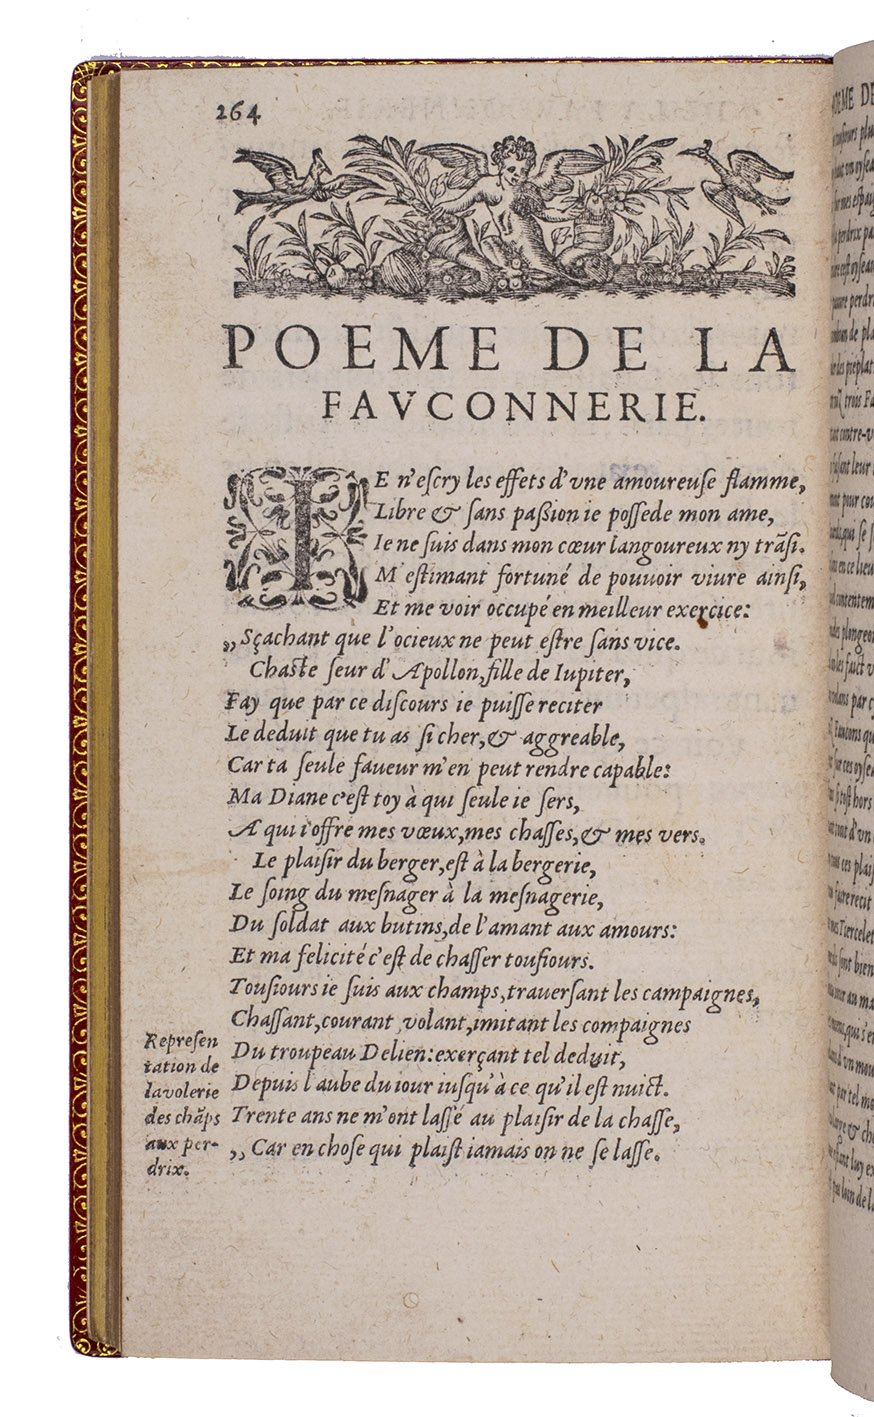 264
POEME DE LA
FAVCONNERIE.
IE n'eſcry les effets d'vne amoureuſe flamme,
Libre & ſans paſſion ie poſſede mon ame,
Ie ne ſuis dans mon cœur langoureux ny trãſi.
M'eſtimant fortuné de pouuoir viure ainſi,
Et me voir occupé en meilleur exerçice:
„Sçachant que l'ocieux ne peut eſtre ſans vice.
Chaſte ſeur d'Apollon, fille de Iupiter,
Fay que par ce diſcours ie puiſſe reciter
Le deduit que tu as ſi cher, & aggreable,
Car ta ſeule faueur m'en peut rendre capable:
Ma Diane c'eſt toy à qui ſeule ie ſers,
A qui i'offre mes vœux, mes chaſſes, & mes vers.
Le plaiſir du berger, eſt à la bergerie,
Le ſoing du meſnager à la meſnagerie,
Du ſoldat aux butins, de l'amant aux amours:
Et ma felicité c'eſt de chaſſer touſiours.
Touſiours ie ſuis aux champs, trauerſant les campaignes,
Chaſſant, courant, volant, imitant les compaignes
Du troupeau Delien: exerçant tel deduit,
Depuis l'aube du iour iuſqu'à ce qu'il eſt nuict.
Trente ans ne m'ont laſſé au plaiſir de la chaſſe,
„Car en choſe qui plaiſt iamais on ne ſe laſſe.
Repreſen
tation de
la volerie
des chãps
aux per-
drix.
POEME DE